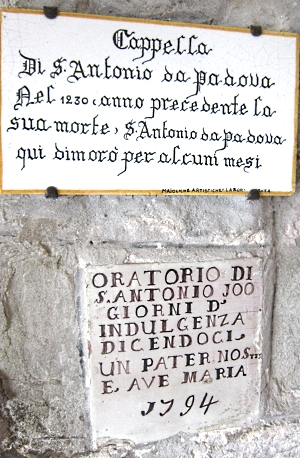 Cappella
Di S. Antonio da Padova
Nel 1230, anno precedente la
sua morte, S. Antonio da Padova
qui dimorò per alcuni mesi
MAIOLICHE ARTISTICHE
ORATORIO DI
S. ANTONIO JOO
GIORNI D'
INDULGENZA
DICENDOCI
UN PATER NOS
E AVE MARIA
1794